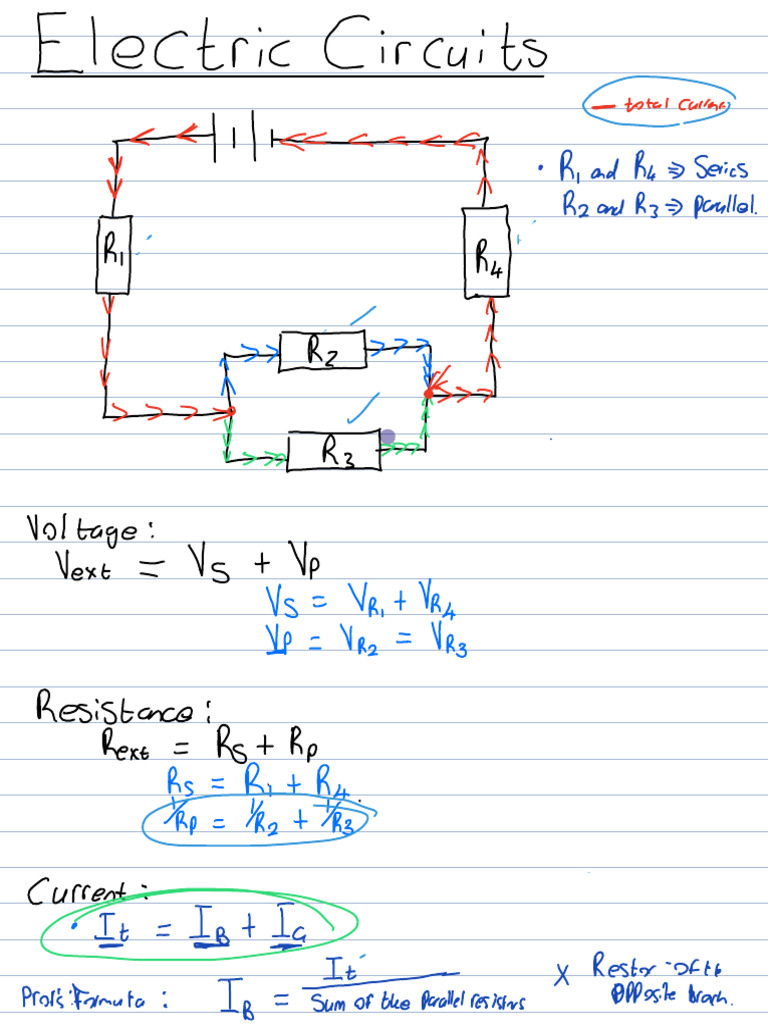 Electric Circuits
— total Current
• R₁ and R₄ ⇒ Series
R₂ and R₃ ⇒ Parallel.
R₁
R₄
R₂
R₃
Voltage:
Vext = Vs + Vp
Vs = VR₁ + VR₄
Vp = VR₂ = VR₃
Resistance:
Rext = Rs + Rp
Rs = R₁ + R₄
1/Rp = 1/R₂ + 1/R₃
Current:
• It = IB + IG
Prof's Formula: IB = It / Sum of the Parallel resistors × Restor of the opposite branch.